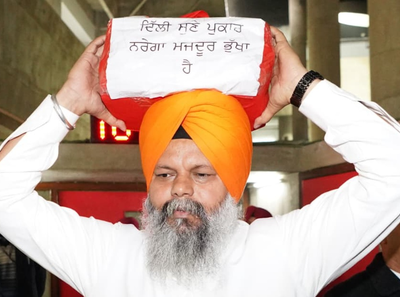 ਦਿੱਲੀ ਸੁਣੇ ਪੁਕਾਰ
ਨਰੇਗਾ ਮਜਦੂਰ ਭੁੱਖਾ
ਹੈ
10